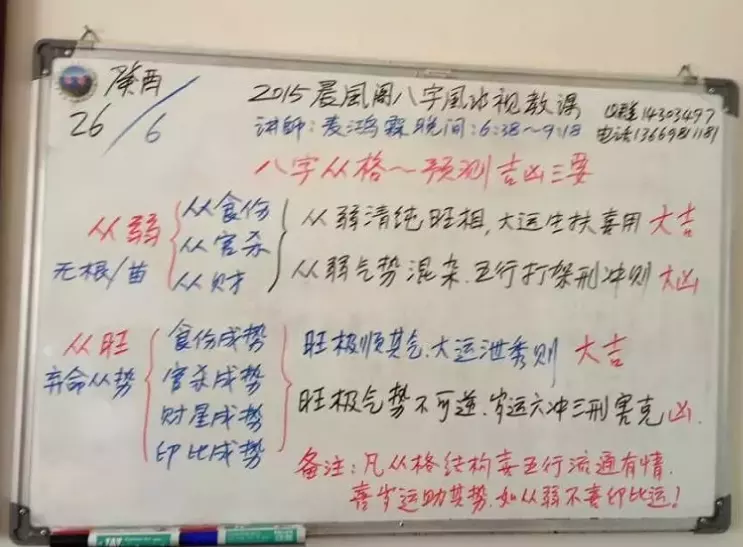 癸酉
26/6
2015晨風阁八字風水视教课
Q群14303497
讲師:麦鸿霖晚间:6:38~9:18
电话13669811181
八字从格~预测吉凶三要
从弱
无根/苗
从食伤
从官杀
从财
从弱清纯旺相,大运生扶喜用 大吉
从弱气势混杂.五行打架刑冲则 大凶
从旺
弃命从势
食伤成势
官杀成势
财星成势
印比成势
旺极顺其气.大运泄秀则 大吉
旺极气势不可逆.岁运六冲三刑害克凶.
备注:凡从格结构喜五行流通有情.
喜岁运助其势.如从弱不喜印比运!